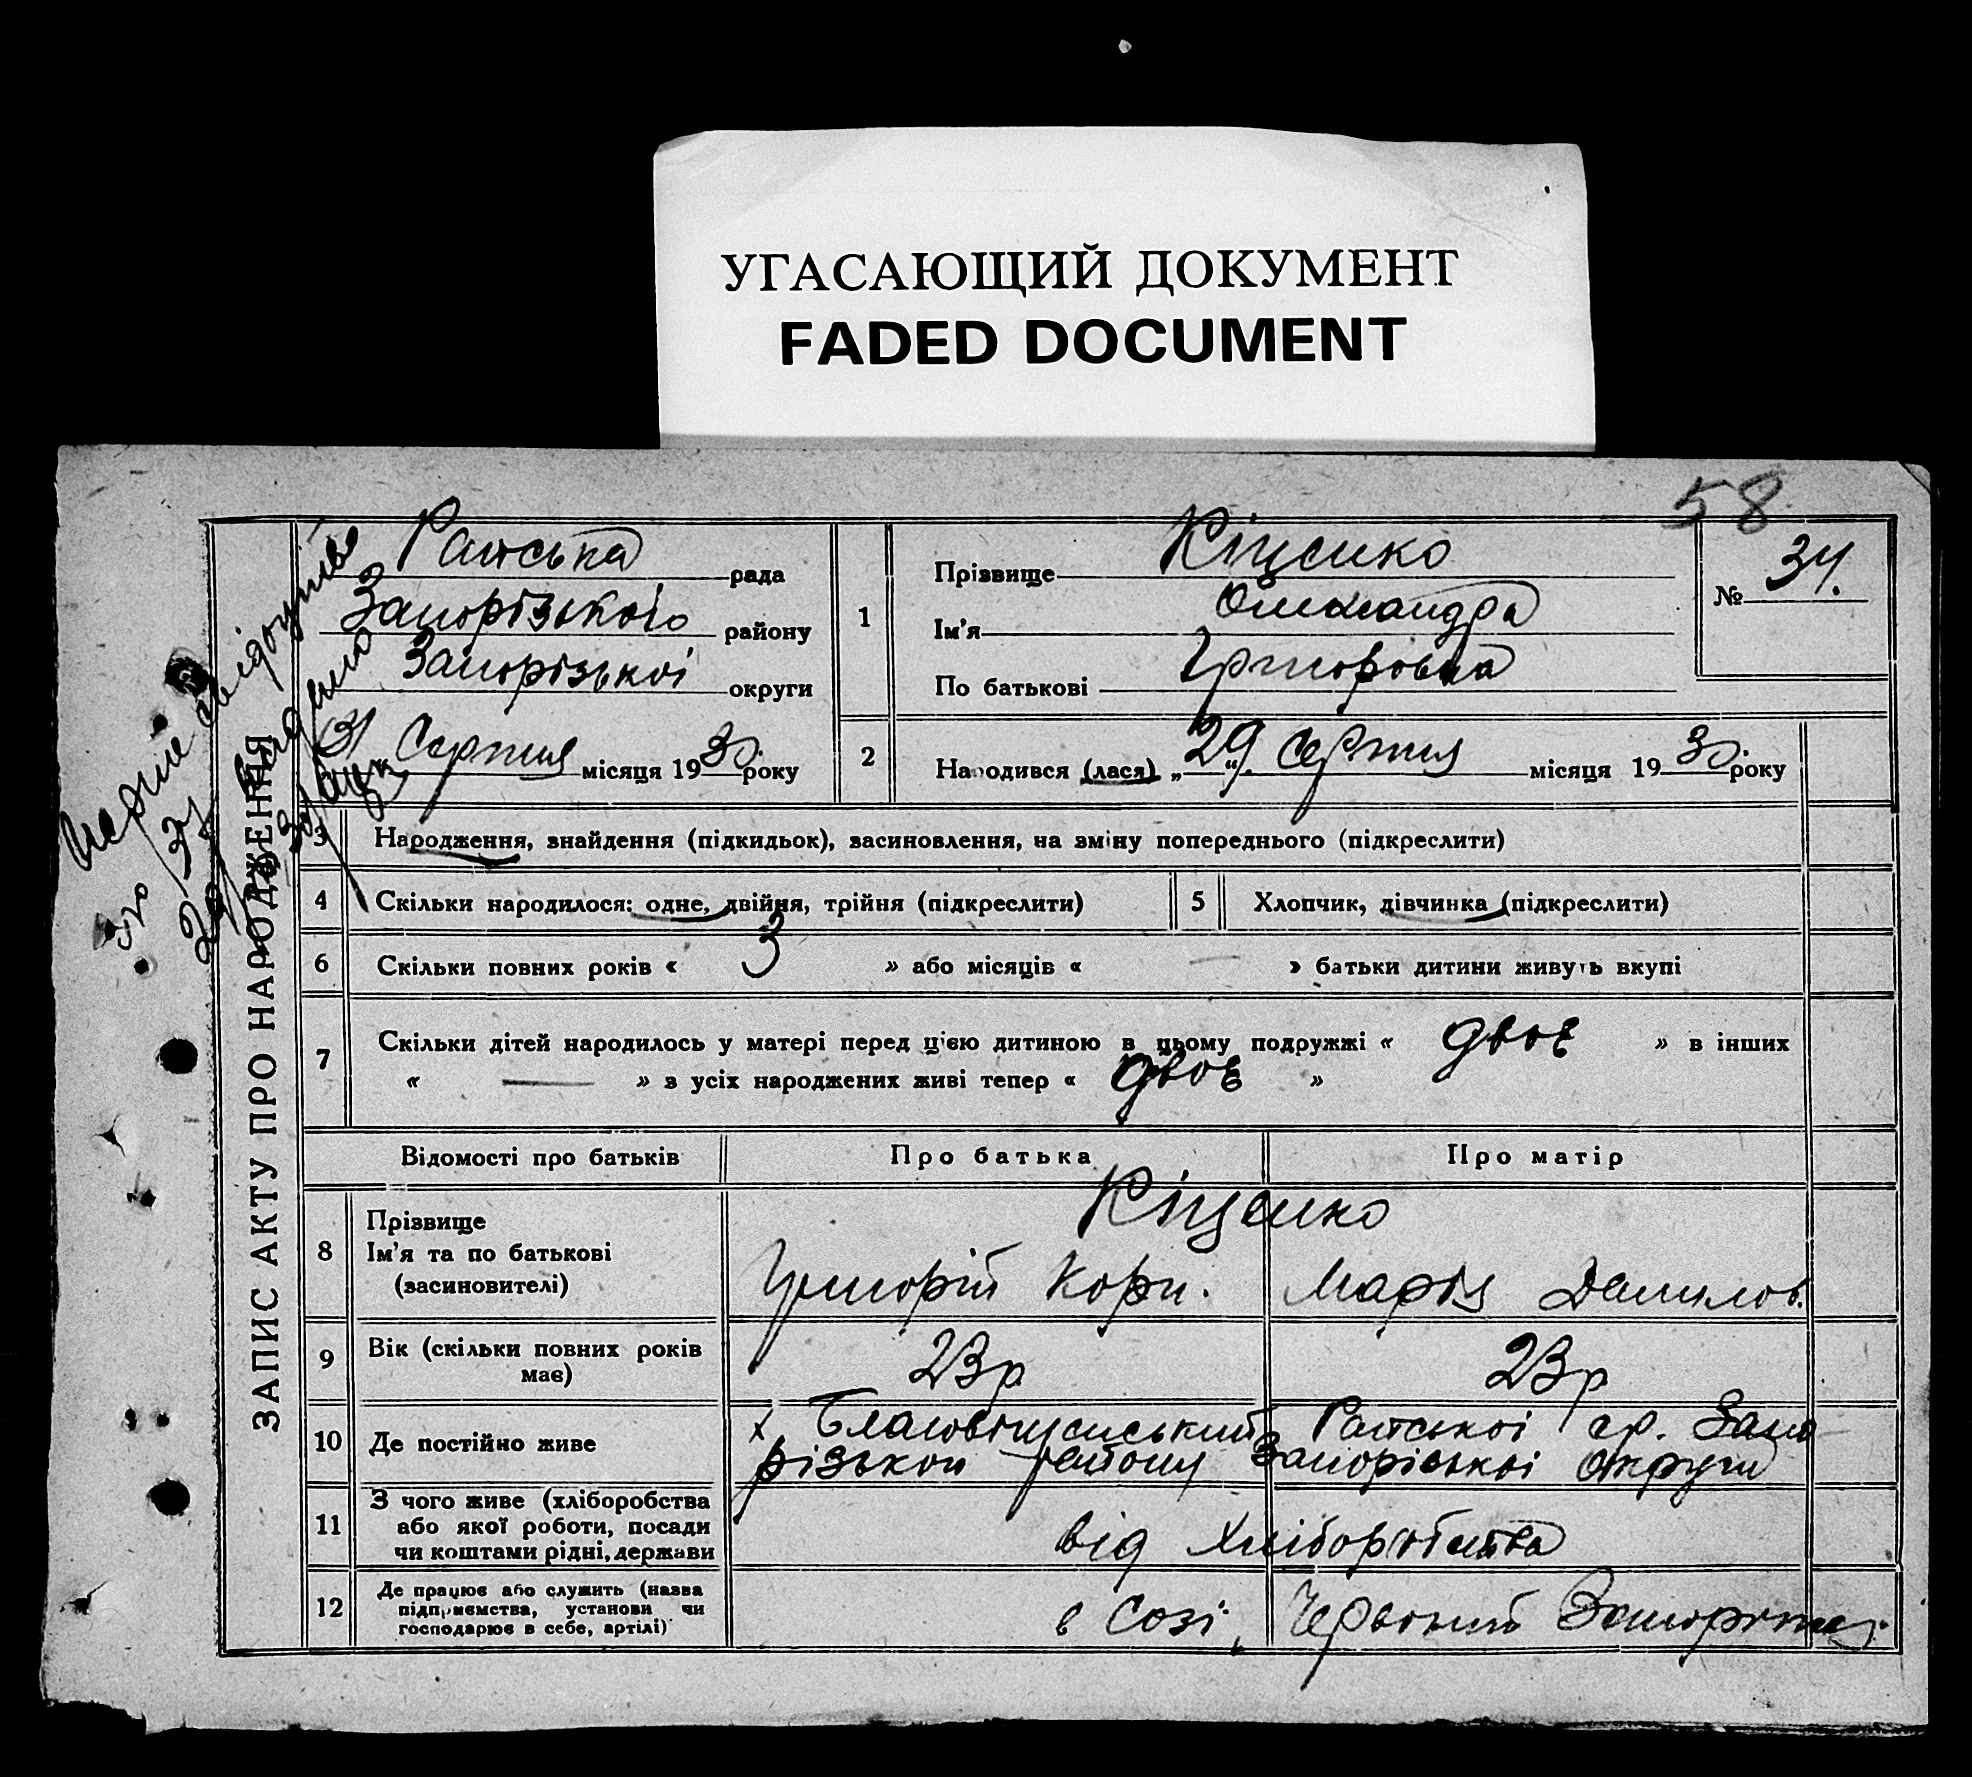 УГАСАЮЩИЙ ДОКУМЕНТ
FADED DOCUMENT
58
ЗАПИС АКТУ ПРО НАРОДЖЕННЯ
рада
Запорізького району
Запорізької округи
31 Серпня місяця 1930 року
1
Прізвище Кіценко
Ім'я Олександра
По батькові Григоровна
№ 34.
2
Народився (лася) „29“ Серпня місяця 1930 року
3 Народження, знайдення (підкидьок), засиновлення, на зміну попереднього (підкреслити)
4 Скільки народилося: одне, двійня, трійня (підкреслити)
5 Хлопчик, дівчинка (підкреслити)
6 Скільки повних років « 3 » або місяців « — » батьки дитини живуть вкупі
7 Скільки дітей народилось у матері перед ц'єю дитиною в цьому подружжі « двоє » в інших
« — » з усіх народжених живі тепер « двоє »
Відомості про батьків Про батька Про матір
Кіценко
8 Прізвище
Ім'я та по батькові
(засиновителі)
Григорій Корн. Марія Данилов.
9 Вік (скільки повних років має)
23р 23р
10 Де постійно живе
х. Благовіщенський ср. Запо
різького району Запорізької Округи
11 З чого живе (хліборобства
або якої роботи, посади
чи коштами рідні, держави
від Хліборобства
12 Де працює або служить (назва
підприємства, установи чи
господарює в себе, артілі)
в Созі „Червоний
перше свідоцтво
за 34